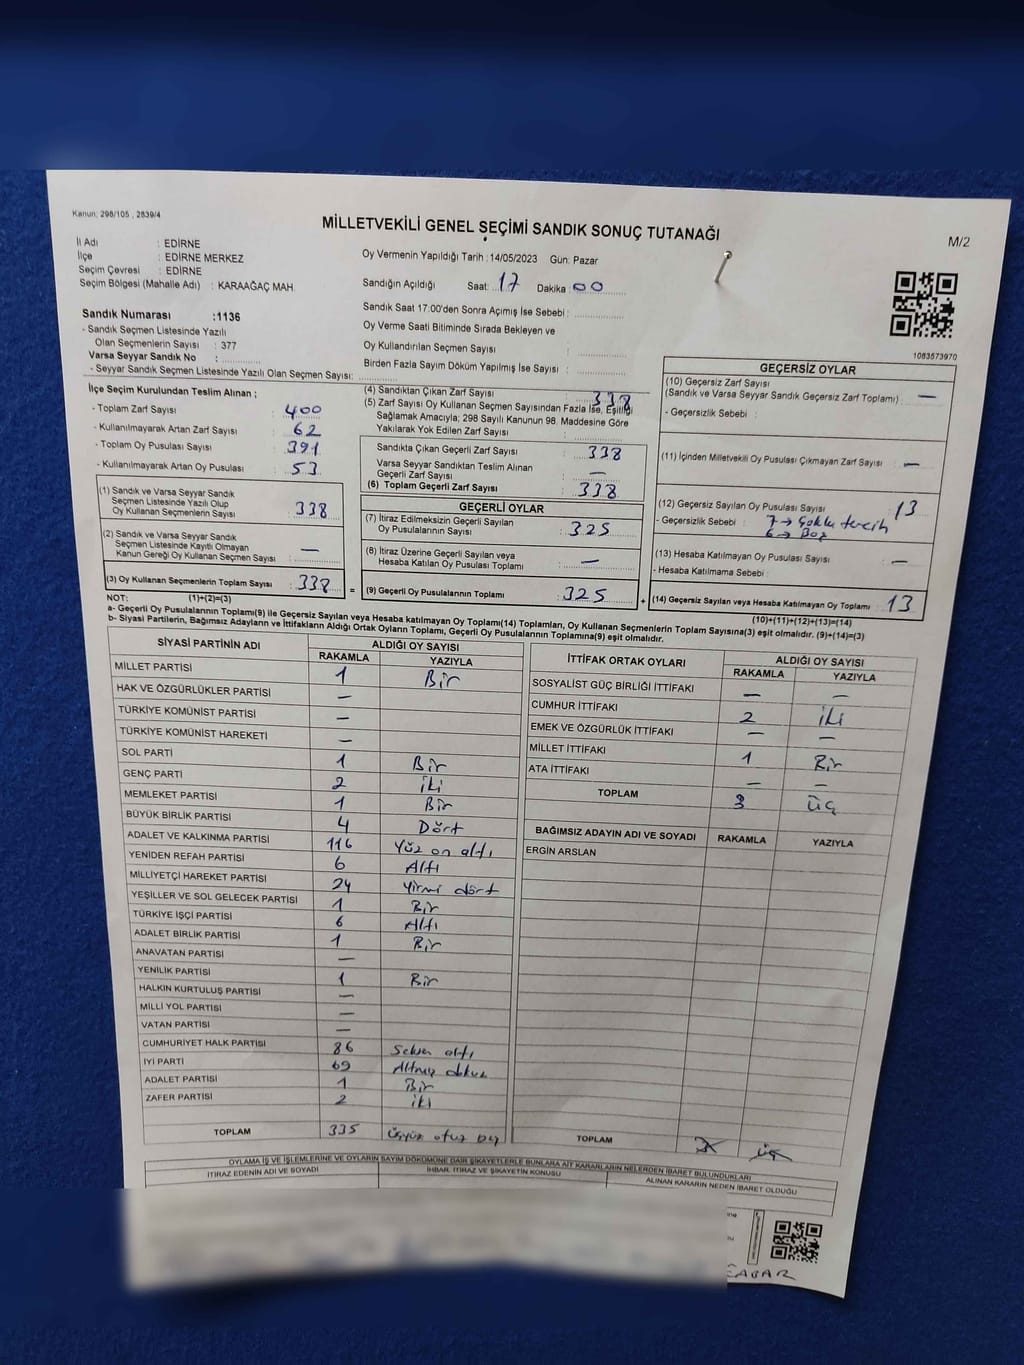 Kanun; 298/105 , 2839/4
MİLLETVEKİLİ GENEL SEÇİMİ SANDIK SONUÇ TUTANAĞI
M/2
İl Adı : EDİRNE
İlçe : EDİRNE MERKEZ
Seçim Çevresi : EDİRNE
Seçim Bölgesi (Mahalle Adı) : KARAAĞAÇ MAH.
Oy Vermenin Yapıldığı Tarih : 14/05/2023 Gün: Pazar
Sandığın Açıldığı Saat: 17 Dakika : 00
Sandık Saat 17:00'den Sonra Açımış İse Sebebi :
Oy Verme Saati Bitiminde Sırada Bekleyen ve
Oy Kullandırılan Seçmen Sayısı :
Birden Fazla Sayım Döküm Yapılmış İse Sayısı :
Sandık Numarası :1136
- Sandık Seçmen Listesinde Yazılı
Olan Seçmenlerin Sayısı : 377
Varsa Seyyar Sandık No :
- Seyyar Sandık Seçmen Listesinde Yazılı Olan Seçmen Sayısı:
1083573970
İlçe Seçim Kurulundan Teslim Alınan ;
- Toplam Zarf Sayısı : 400
- Kullanılmayarak Artan Zarf Sayısı : 62
- Toplam Oy Pusulası Sayısı : 391
- Kullanılmayarak Artan Oy Pusulası : 53
(1) Sandık ve Varsa Seyyar Sandık
Seçmen Listesinde Yazılı Olup
Oy Kullanan Seçmenlerin Sayısı : 338
(2) Sandık ve Varsa Seyyar Sandık
Seçmen Listesinde Kayıtlı Olmayan
Kanun Gereği Oy Kullanan Seçmen Sayısı : —
(3) Oy Kullanan Seçmenlerin Toplam Sayısı : 338
(4) Sandıktan Çıkan Zarf Sayısı : 338
(5) Zarf Sayısı Oy Kullanan Seçmen Sayısından Fazla İse, Eşitliği
Sağlamak Amacıyla; 298 Sayılı Kanunun 98. Maddesine Göre
Yakılarak Yok Edilen Zarf Sayısı :
Sandıkta Çıkan Geçerli Zarf Sayısı : 338
Varsa Seyyar Sandıktan Teslim Alınan
Geçerli Zarf Sayısı : —
(6) Toplam Geçerli Zarf Sayısı : 338
GEÇERLİ OYLAR
(7) İtiraz Edilmeksizin Geçerli Sayılan
Oy Pusulalarının Sayısı : 325
(8) İtiraz Üzerine Geçerli Sayılan veya
Hesaba Katılan Oy Pusulası Toplamı : —
= (9) Geçerli Oy Pusulalarının Toplamı : 325
GEÇERSİZ OYLAR
(10) Geçersiz Zarf Sayısı
(Sandık ve Varsa Seyyar Sandık Geçersiz Zarf Toplamı) : —
- Geçersizlik Sebebi :
(11) İçinden Milletvekili Oy Pusulası Çıkmayan Zarf Sayısı : —
(12) Geçersiz Sayılan Oy Pusulası Sayısı : 13
- Geçersizlik Sebebi : 7 → Çoklu tercih
6 → Boş
(13) Hesaba Katılmayan Oy Pusulası Sayısı : —
- Hesaba Katılmama Sebebi :
+ (14) Geçersiz Sayılan veya Hesaba Katılmayan Oy Toplamı : 13
NOT: (1)+(2)=(3)
(10)+(11)+(12)+(13)=(14)
a- Geçerli Oy Pusulalarının Toplamı(9) ile Geçersiz Sayılan veya Hesaba katılmayan Oy Toplamı(14) Toplamları, Oy Kullanan Seçmenlerin Toplam Sayısına(3) eşit olmalıdır. (9)+(14)=(3)
b- Siyasi Partilerin, Bağımsız Adayların ve İttifakların Aldığı Ortak Oyların Toplamı, Geçerli Oy Pusulalarının Toplamına(9) eşit olmalıdır.
SİYASİ PARTİNİN ADI ALDIĞI OY SAYISI
RAKAMLA YAZIYLA
MİLLET PARTİSİ 1 Bir
HAK VE ÖZGÜRLÜKLER PARTİSİ —
TÜRKİYE KOMÜNİST PARTİSİ —
TÜRKİYE KOMÜNİST HAREKETİ —
SOL PARTİ 1 Bir
GENÇ PARTİ 2 iki
MEMLEKET PARTİSİ 1 Bir
BÜYÜK BİRLİK PARTİSİ 4 Dört
ADALET VE KALKINMA PARTİSİ 116 Yüz on altı
YENİDEN REFAH PARTİSİ 6 Altı
MİLLİYETÇİ HAREKET PARTİSİ 24 Yirmi dört
YEŞİLLER VE SOL GELECEK PARTİSİ 1 Bir
TÜRKİYE İŞÇİ PARTİSİ 6 Altı
ADALET BİRLİK PARTİSİ 1 Bir
ANAVATAN PARTİSİ —
YENİLİK PARTİSİ 1 Bir
HALKIN KURTULUŞ PARTİSİ —
MİLLİ YOL PARTİSİ —
VATAN PARTİSİ —
CUMHURİYET HALK PARTİSİ 86 Seksen altı
İYİ PARTİ 69 Altmış dokuz
ADALET PARTİSİ 1 Bir
ZAFER PARTİSİ 2 iki
TOPLAM 335 üçyüz otuz beş
İTTİFAK ORTAK OYLARI ALDIĞI OY SAYISI
RAKAMLA YAZIYLA
SOSYALİST GÜÇ BİRLİĞİ İTTİFAKI — —
CUMHUR İTTİFAKI 2 iki
EMEK VE ÖZGÜRLÜK İTTİFAKI — —
MİLLET İTTİFAKI 1 Bir
ATA İTTİFAKI — —
TOPLAM 3 üç
BAĞIMSIZ ADAYIN ADI VE SOYADI RAKAMLA YAZIYLA
ERGİN ARSLAN
TOPLAM 3 üç
OYLAMA İŞ VE İŞLEMLERİNE VE OYLARIN SAYIM DÖKÜMÜNE DAİR ŞİKAYETLERLE BUNLARA AİT KARARLARIN NELERDEN İBARET BULUNDUKLARI
İTİRAZ EDENİN ADI VE SOYADI İHBAR, İTİRAZ VE ŞİKAYETİN KONUSU ALINAN KARARIN NEDEN İBARET OLDUĞU